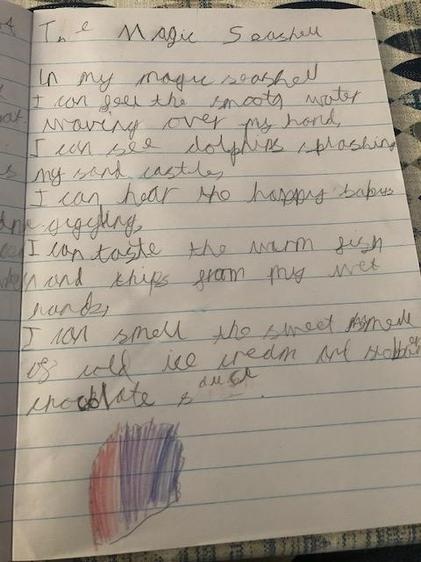 The Magic Seashell
In my magic seashell
I can feel the smooth water
waving over my hand,
I can see dolphins splashing
my sand castle,
I can hear the happy babys
giggling,
I can taste the warm fish
and chips from my wet
hands,
I can smell the sweet
of cold ice cream and
chocolate